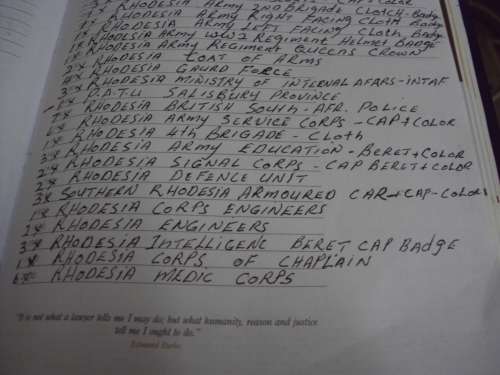 CAP + COLOR
RHODESIA ARMY 2ND BRIGADE CLOTH - BADGE
RHODESIA ARMY RIGHT FACING CLOTH BADGE
RHODESIA ARMY LEFT FACING CLOTH BADGE
1X RHODESIA ARMY WW2 REGIMENT HELMET BADGE
RHODESIA ARMY REGIMENT QUEENS CROWN
RHODESIA COAT OF ARMS
RHODESIA GAURD FORCE
RHODESIA MINISTRY OF INTERNAL AFARS - INTAF
D.A.T.U SALISBURY PROVINCE
7X RHODESIA BRITISH SOUTH - AFR. POLICE
6X RHODESIA ARMY SERVICE CORPS - CAP + COLOR
1X RHODESIA 4th BRIGADE - CLOTH
3X RHODESIA ARMY EDUCATION - BERET + COLOR
2X RHODESIA SIGNAL CORPS - CAP BERET + COLOR
2X RHODESIA DEFENCE UNIT
3X SOUTHERN RHODESIA ARMOURED CAR - CAP - COLOR
1X RHODESIA CORPS ENGINEERS
RHODESIA ENGINEERS
3X RHODESIA INTELLIGENC BERET CAP BADGE
1X RHODESIA CORPS OF CHAPLAIN
RHODESIA MEDIC CORPS
"It is not what a lawyer tells me I may do; but what humanity, reason and justice
tell me I ought to do."
Edmund Burke